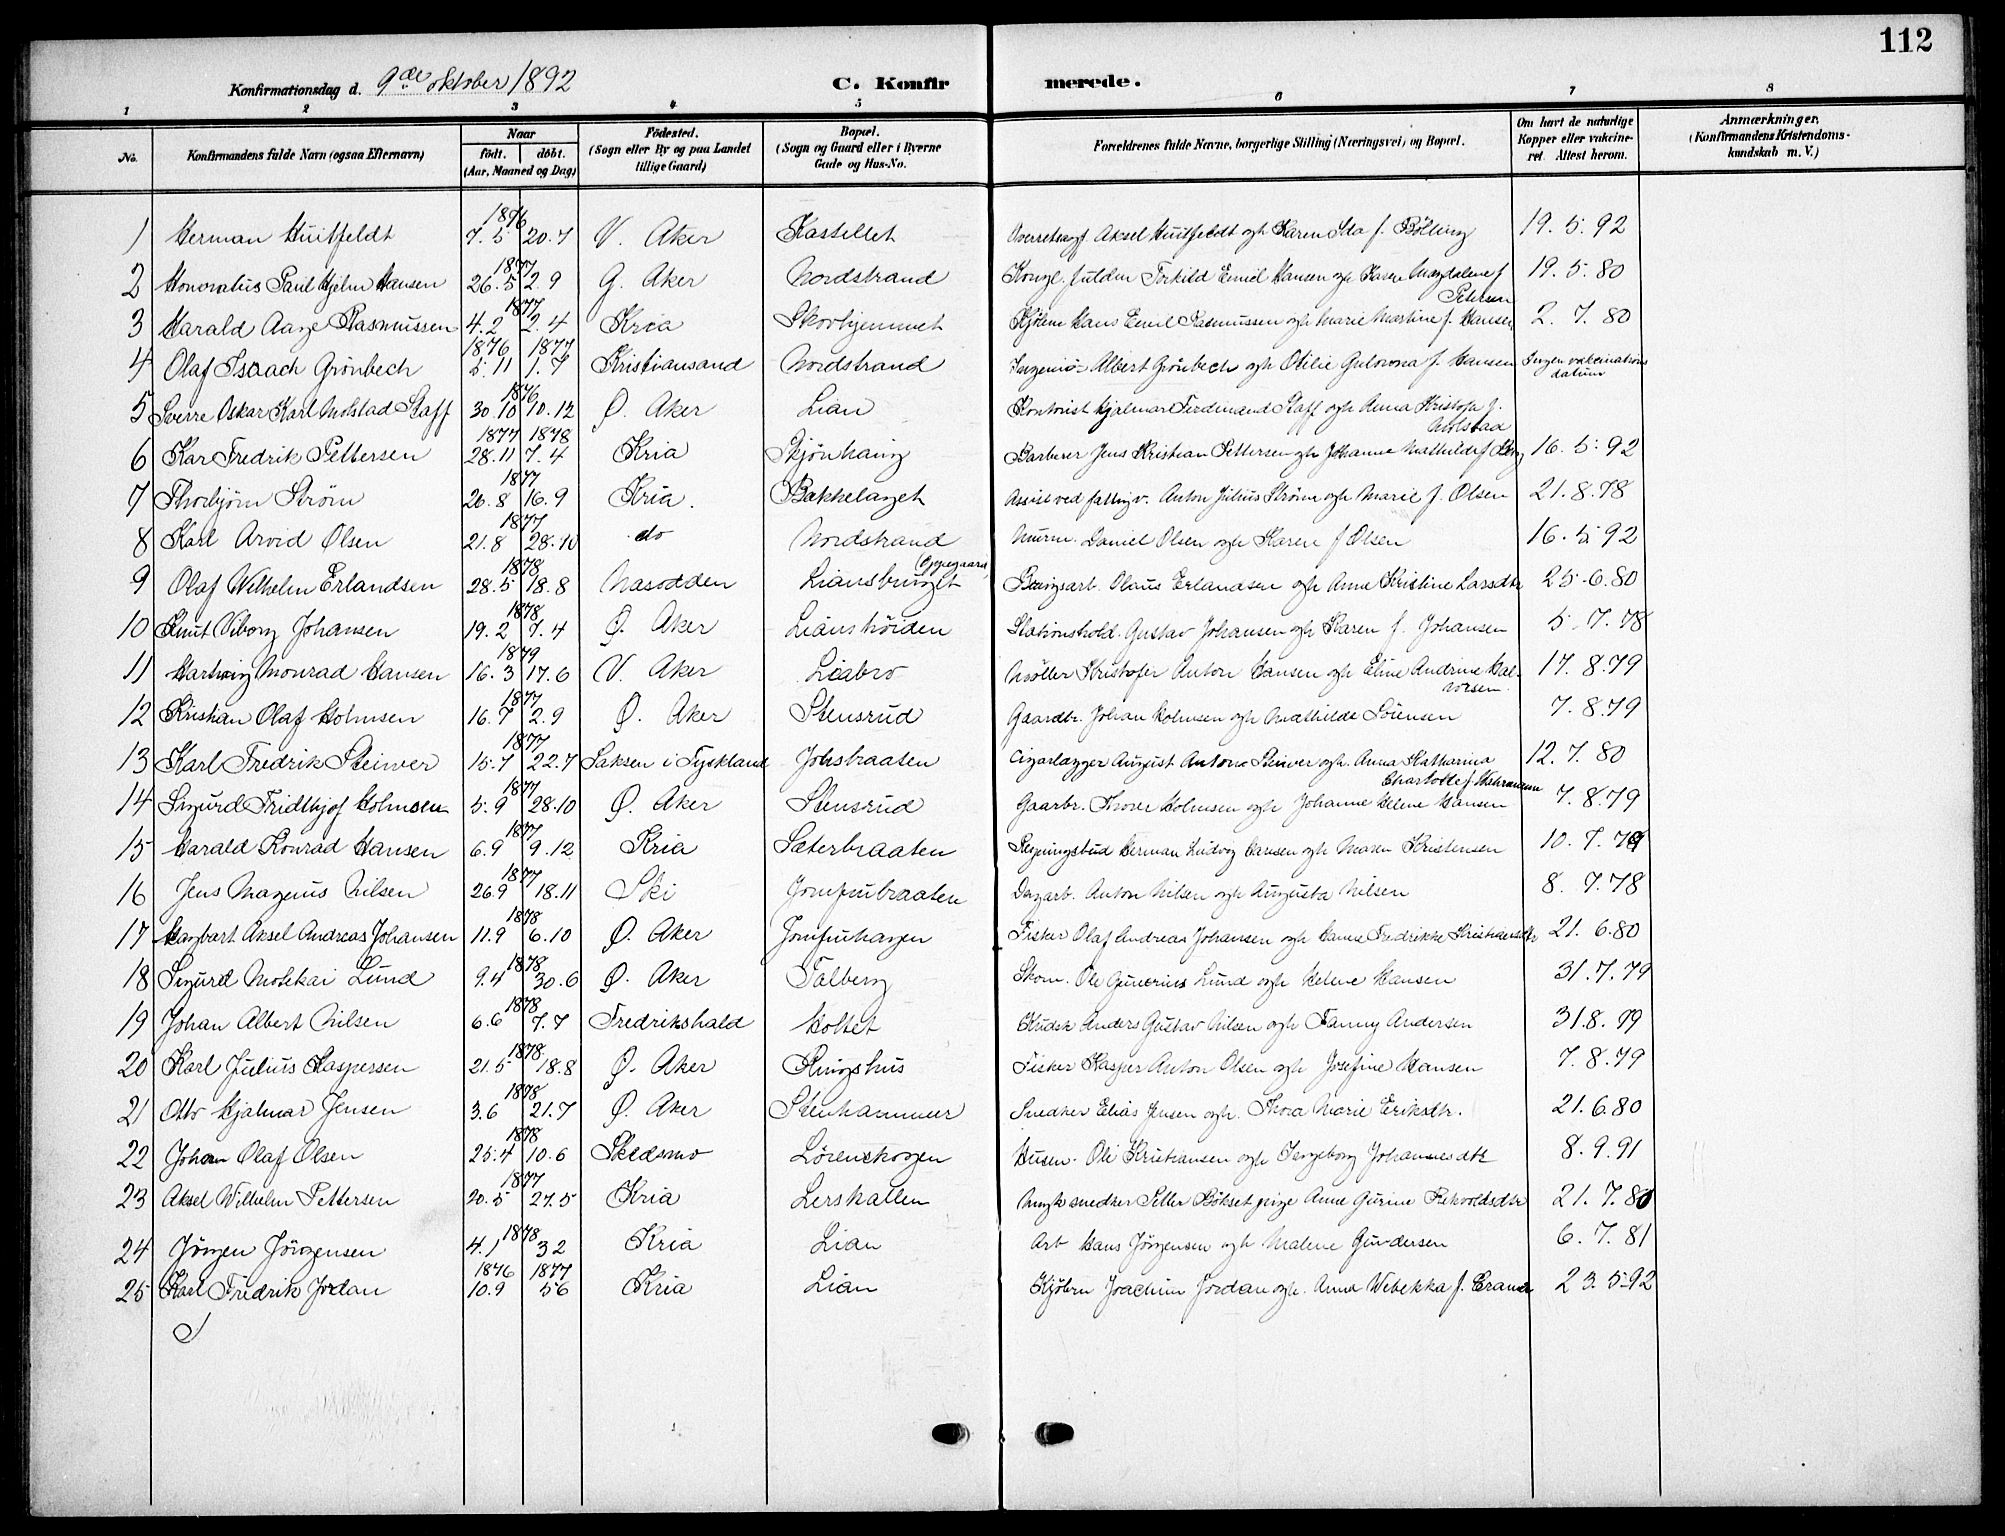 112
Konfirmationsdag d. 9de oktober 1892 C. Konfirmerede.
1 2 3 4 5 6 7 8
No. Konfirmandens fulde Navn (ogsaa Efternavn) Naar født. døbt. (Aar, Maaned og Dag) Fødested. (Sogn eller By og paa Landet tillige Gaard) Bopæl. (Sogn og Gaard eller i Byerne Gade og Hus-No. Forældrenes fulde Navne, borgerlige Stilling (Næringsvei) og Bopæl. Om havt de naturlige Kopper eller vakcineret. Attest herom. Anmærkninger. (Konfirmandens Kristendomskundskab m. V.)
1 Herman Huitfeldt 1876 7.5 20.7 V. Aker Kastellet Overretssagf. Aksel Huitfeldt og h. Karen Ida f. Bølling 19.5.92
2 Honoratus Paul Hjelm Hansen 1877 26.5 2.9 G. Aker Nordstrand Kongl. fuldm Torkild Emil Hansen og h. Magdalene f. Petersen 19.5.80
3 Harald Aage Rasmussen 1877 4.2 2.4 Kria Skovhjemmet Kjøbm Hans Emil Rasmussen og h. Marie Martine f. Hansen 2.7.80
4 Olaf Isaach Grönbech 1876 1877 5.11 1.7 Kristiansand Nordstrand Ingeniør Albert Grönbech og h. Otilie f. Hansen Ingen vakcinations datum
5 Sverre Oskar Karl Molstad Staff 1876 30.10 10.12 Ø. Aker Lian Kontorist Hjalmar Ferdinand Staff og h. Anna Kristofa f. Molstad
6 Kar Fredrik Pettersen 1877 1878 28.11 7.4 Kria Barberer Jens Kristian Pettersen og h. Johanne Mathilde f. 16.5.92
7 Thorbjørn Strøm 1877 20.8 16.9 Kria. Bekkelaget Assist ved fattigv. Anton Julius Strøm og h. Marie f. Olsen 21.8.78
8 Karl Arvid Olsen 1877 21.8 28.10 do Nordstrand Murm. Daniel Olsen og h. Karen f. Olsen 16.5.92
9 Olaf Wilhelm Erlandsen 1878 28.5 18.8 Nasodden Liansbruget (Oppegaard) Olaus Erlandsen og h. Anne Kristine Larsdtr 25.6.80
10 Knut Viborg Johansen 1878 19.2 7.4 Ø. Aker Lianshöiden Stationshold. Gustav Johansen og h. Karen f. Johansen 5.7.78
11 Hartvig Monrad Hansen 1879 16.3 17.6 V. Aker Liabro Møller Kristofer Anton Hansen og h. Eline Andrine Halvorsen 17.8.79
12 Kristian Olaf Holmsen 1877 16.7 2.9 Ø. Aker Stensrud Gaardbr. Johan Holmsen og h. Mathilde Sörensen 7.8.79
13 Karl Fredrik Steiniver 1877 15.7 22.7 Saksen i Tyskland Johsbraaten Cigarlægger August Anton og h. Anna Katharina Charlotte f. 12.7.80
14 Sigurd Fridthjof Holmsen 1877 5.9 28.10 Ø. Aker Stensrud Gaarbr. Thorer Holmsen og h. Johanne Helene Hansen 7.8.79
15 Harald Konrad Hansen 1877 6.9 9.12 Kria Sæterbraaten Regningsbud Herman Ludvig Hansen og h. Maren Kristensen 10.7.79
16 Jens Magnus Nilsen 1877 26.9 18.11 Ski Jomfrubraaten Dagarb. Anton Nilsen og h. Augusta Nilsen 8.7.78
17 Hagbart Aksel Andreas Johansen 1878 11.9 6.10 Ø. Aker Jomfruhagen Fisker Olaf Andreas Johansen og h. Hanna Fredrikke Kristiansdtr 21.6.80
18 Sigurd Lund 1878 9.4 30.6 Ø. Aker Talberg Skom. Ole Lund og h. Helene Hansen 31.7.79
19 Johan Albert Nilsen 1878 6.6 7.7 Fredrikshald Holtet Kudsk Anders Gustav Nilsen og h. Fanny Andersen 31.8.79
20 Karl Julius Kaspersen 1878 21.5 18.8 Ø. Aker Ringshus Fisker Kasper Anton Olsen og h. Josefine Hansen 7.8.79
21 Otto Hjalmar Jensen 1878 3.6 21.7 Ø. Aker Stenhammer Snedker Elias Jensen og h. Thora Marie Eriksdtr. 21.6.80
22 Johan Olaf Olsen 1878 25.4 10.6 Skedsmo Lörenskogen Husm. Ole Kristiansen og h. Ingeborg Johannesdtr 8.9.91
23 Aksel Wilhelm Pettersen 1877 20.5 27.5 Kria Lerskallen snedker Petter pige Anne Gurine 21.7.80
24 Jörgen Jörgensen 1878 4.1 3.2 Kria Lian Arb Hans Jörgensen og h. Malene Gundersen 6.7.81
25 Karl Fredrik Jordan 1876 1877 10.9 5.6 Kria Lian Kjöbm Joachim Jordan og h. Anna Webekka f. 23.5.92